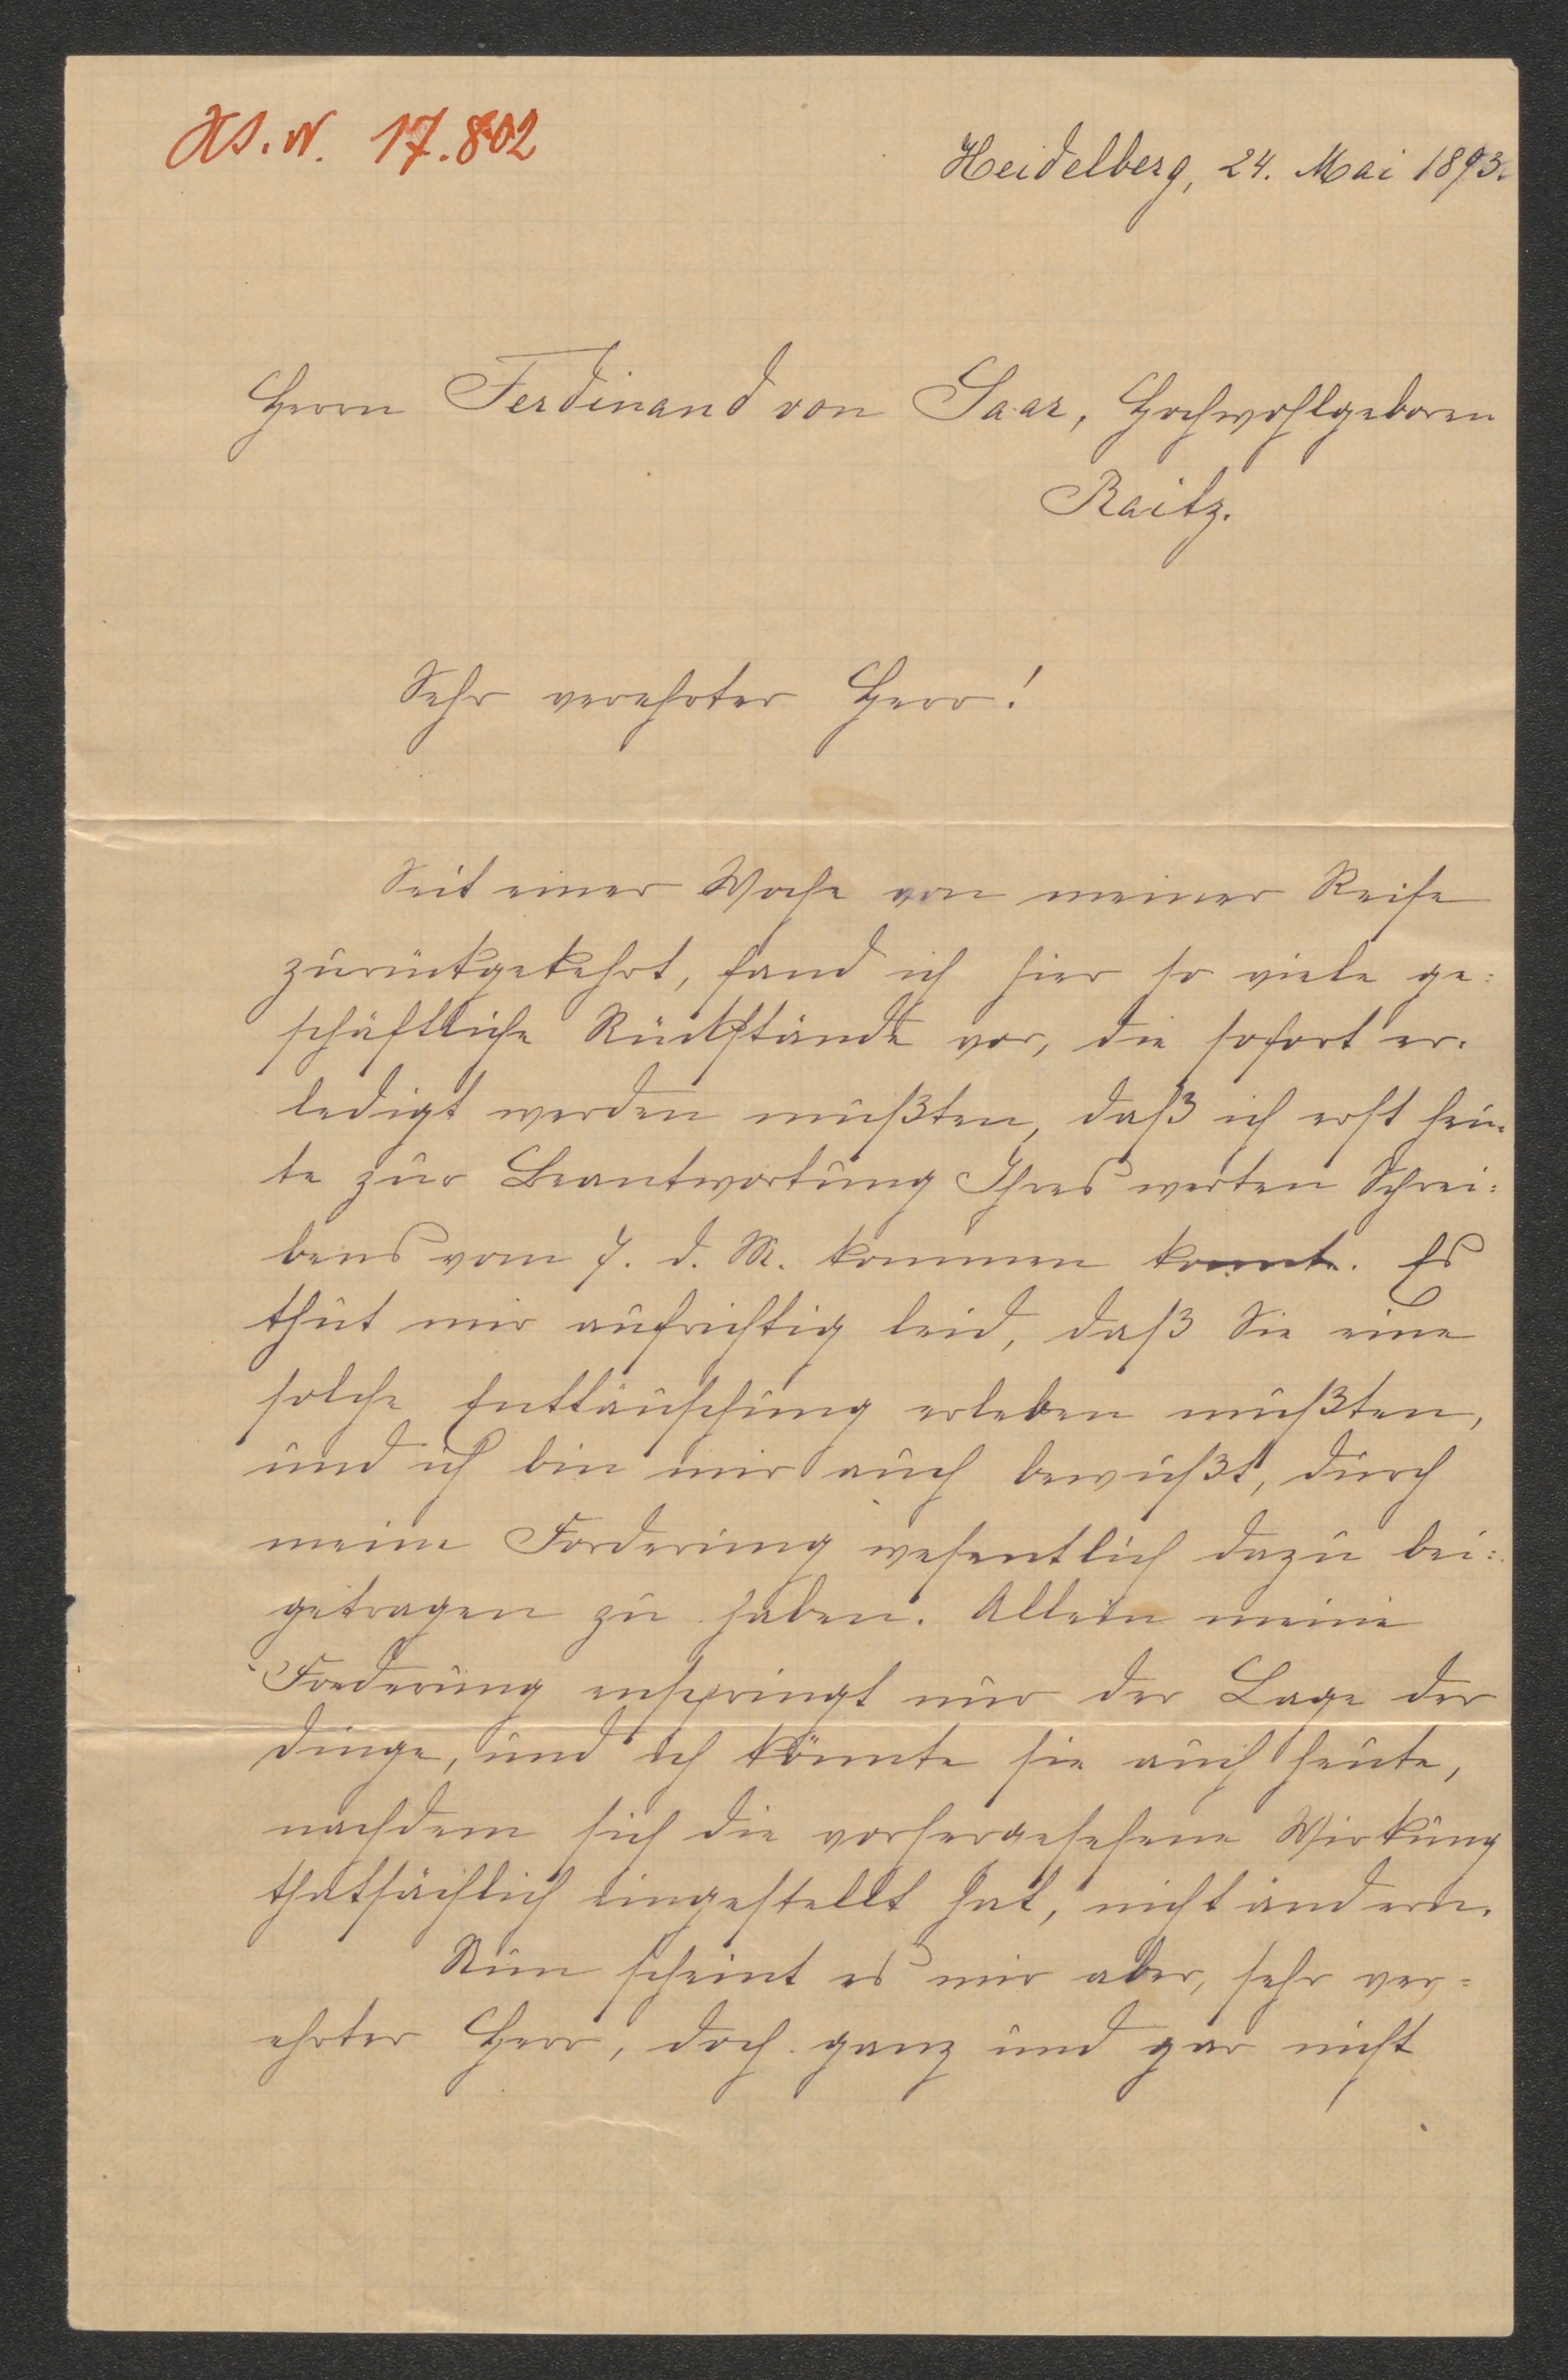 H.S.N. 17.802
Heidelberg, 24. Mai 1893.
Herrn Ferdinand von Saar, Hochwohlgeboren
Raitz.
Sehr verehrter Herr!
Seit einer Woche von meiner Reise
zurückgekehrt, fand ich hier so viele ge:
schäftliche Rückstände vor, die sofort er-
ledigt werden mußten, daß ich erst heu-
te zur Beantwortung Ihres werten Schrei:
bens vom 7. d. M. kommen konnte. Es
thut mir aufrichtig leid, daß Sie eine
solche Enttäuschung erleben mußten,
und ich bin mir auch bewußt, durch
meine Forderung wesentlich dazu bei:
getragen zu haben. Allein meine
Forderung entspringt nur der Lage der
Dinge, und ich könnte sie auch heute,
nachdem sich die vorhergesehene Wirkung
thatsächlich eingestellt hat, nicht ändern.
Nun scheint es mir aber, sehr ver=
ehrter Herr, doch ganz und gar nicht